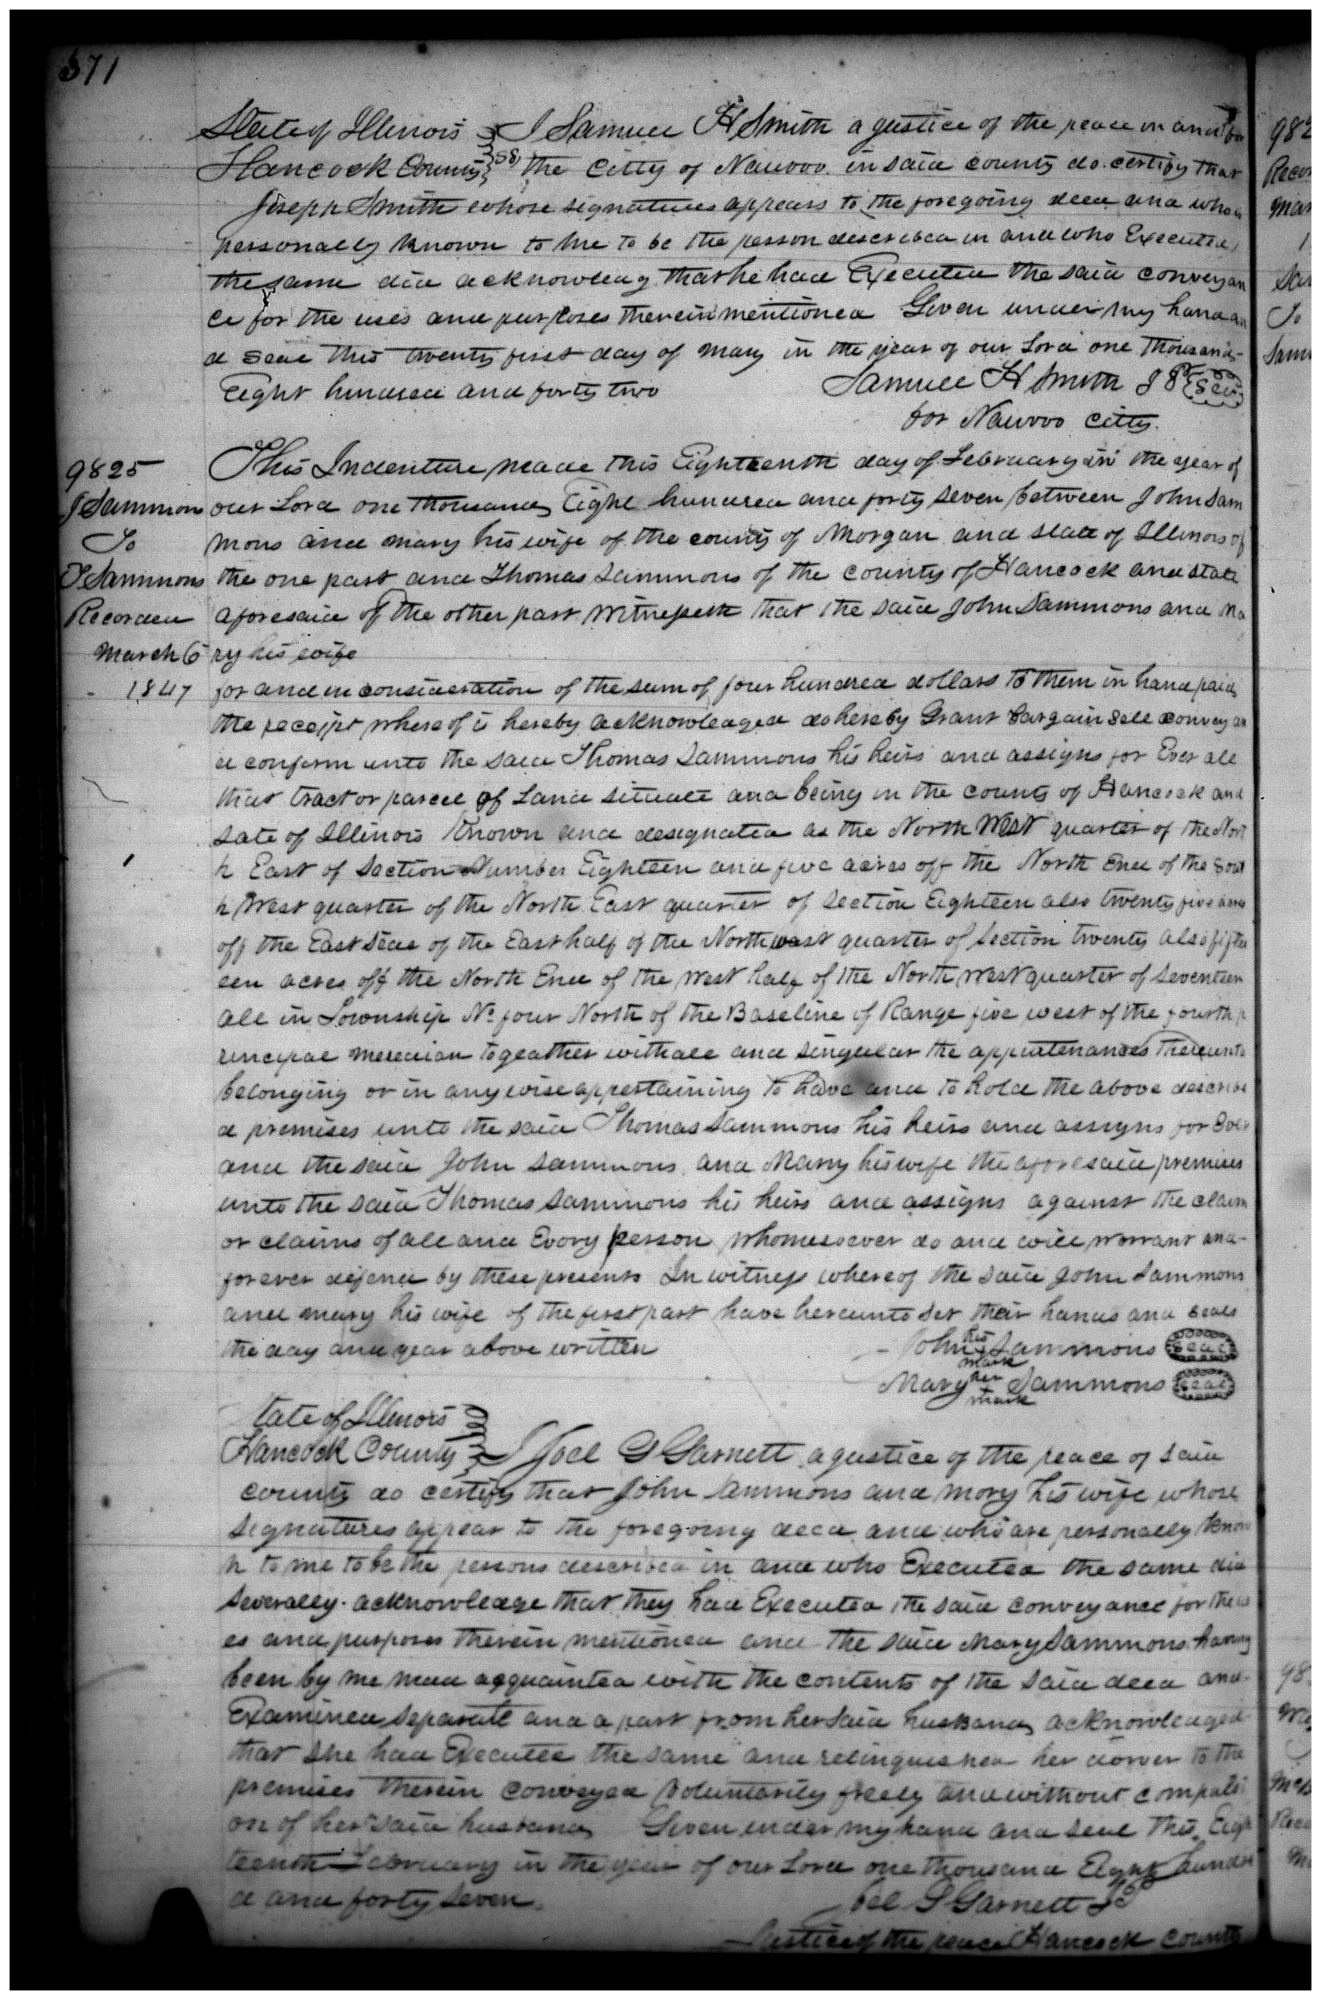 571
State of Illinois I Samuel H Smith a justice of the peace in and for
Hancock County SS the Citty of Nauvoo in said county do certify that
Joseph Smith whose signatures appears to the foregoing deed and who is
personally known to me to be the person described in and who Executed
the same did acknowledg that he had Executed the said conveyan
ce for the uses and purposes therein mentioned Given under my hand an
d seal this twenty first day of may in the year of our Lord one thousand
Eight hundred and forty two Samuel H Smith J P Seal
for Nauvoo Citty.
9825
J Sammons
To
T Sammons
Recorded
March 6
1847
This Indenture made this Eighteenth day of February in the year of
our Lord one thousand Eight hundred and forty seven between John Sam
mons and mary his wife of the county of Morgan and state of Illinois of
the one part and Thomas Sammons of the county of Hancock and state
aforesaid of the other part Witnesseth that the said John Sammons and Ma
ry his wife
for and in consideration of the sum of four hundred dollars to them in hand paid
the receipt whereof is hereby acknowledged do hereby Grant bargain sell convey an
d conform unto the said Thomas Sammons his heirs and assigns for Ever all
that tract or parcel of Land situate and being in the county of Hancock and
sate of Illinois Known and designated as the North West quarter of the Nort
h East of Section Number Eighteen and five acres off the North End of the Sout
h West quarter of the North East quarter of section Eighteen also twenty five acres
off the East side of the East half of the North west quarter of section twenty also fifte
een acres off the North End of the West half of the North West quarter of seventeen
all in Township No four North of the Baseline of Range five west of the fourth p
rincipal meredian togeather with all and singular the appurtenances Thereunto
belonging or in any wise appertaining to have and to hold the above describe
d premises unto the said Thomas Sammons his heirs and assigns for Ever
and the said John Sammons and Mary his wife the aforesaid premises
unto the said Thomas Sammons his heirs and assigns against the claim
or claims of all and Every person whomesoever do and will warrant and
forever defend by these presents In witness whereof the said John Sammons
and mary his wife of the first part have hereunto set their hands and seals
the day and year above written John his mark Sammons Seal
Mary her mark Sammons Seal
tate of Illinois
Hancock County I Joel G Garnett a justice of the peace of said
county do certify that John Sammons and mary his wife whose
signatures appear to the foregoing deed and who are personally know
n to me to be the persons described in and who Executed the same did
severally acknowledge that they had Executed the said conveyance for the us
es and purposes therein mentioned and the said Mary Sammons having
been by me mad acquainted with the contents of the said deed and
Examined separate and a part from her said husband acknowledged
that she had Executed the same and relinquished her dower to the
premises therein conveyed voluntarily freely and without compulsi
on of her said husband Given under my hand and seal this Eigh
teenth February in the year of our Lord one thousand Eight hundre
d and forty seven. Joel G Garnett JP
Justice of the peace Hancock County